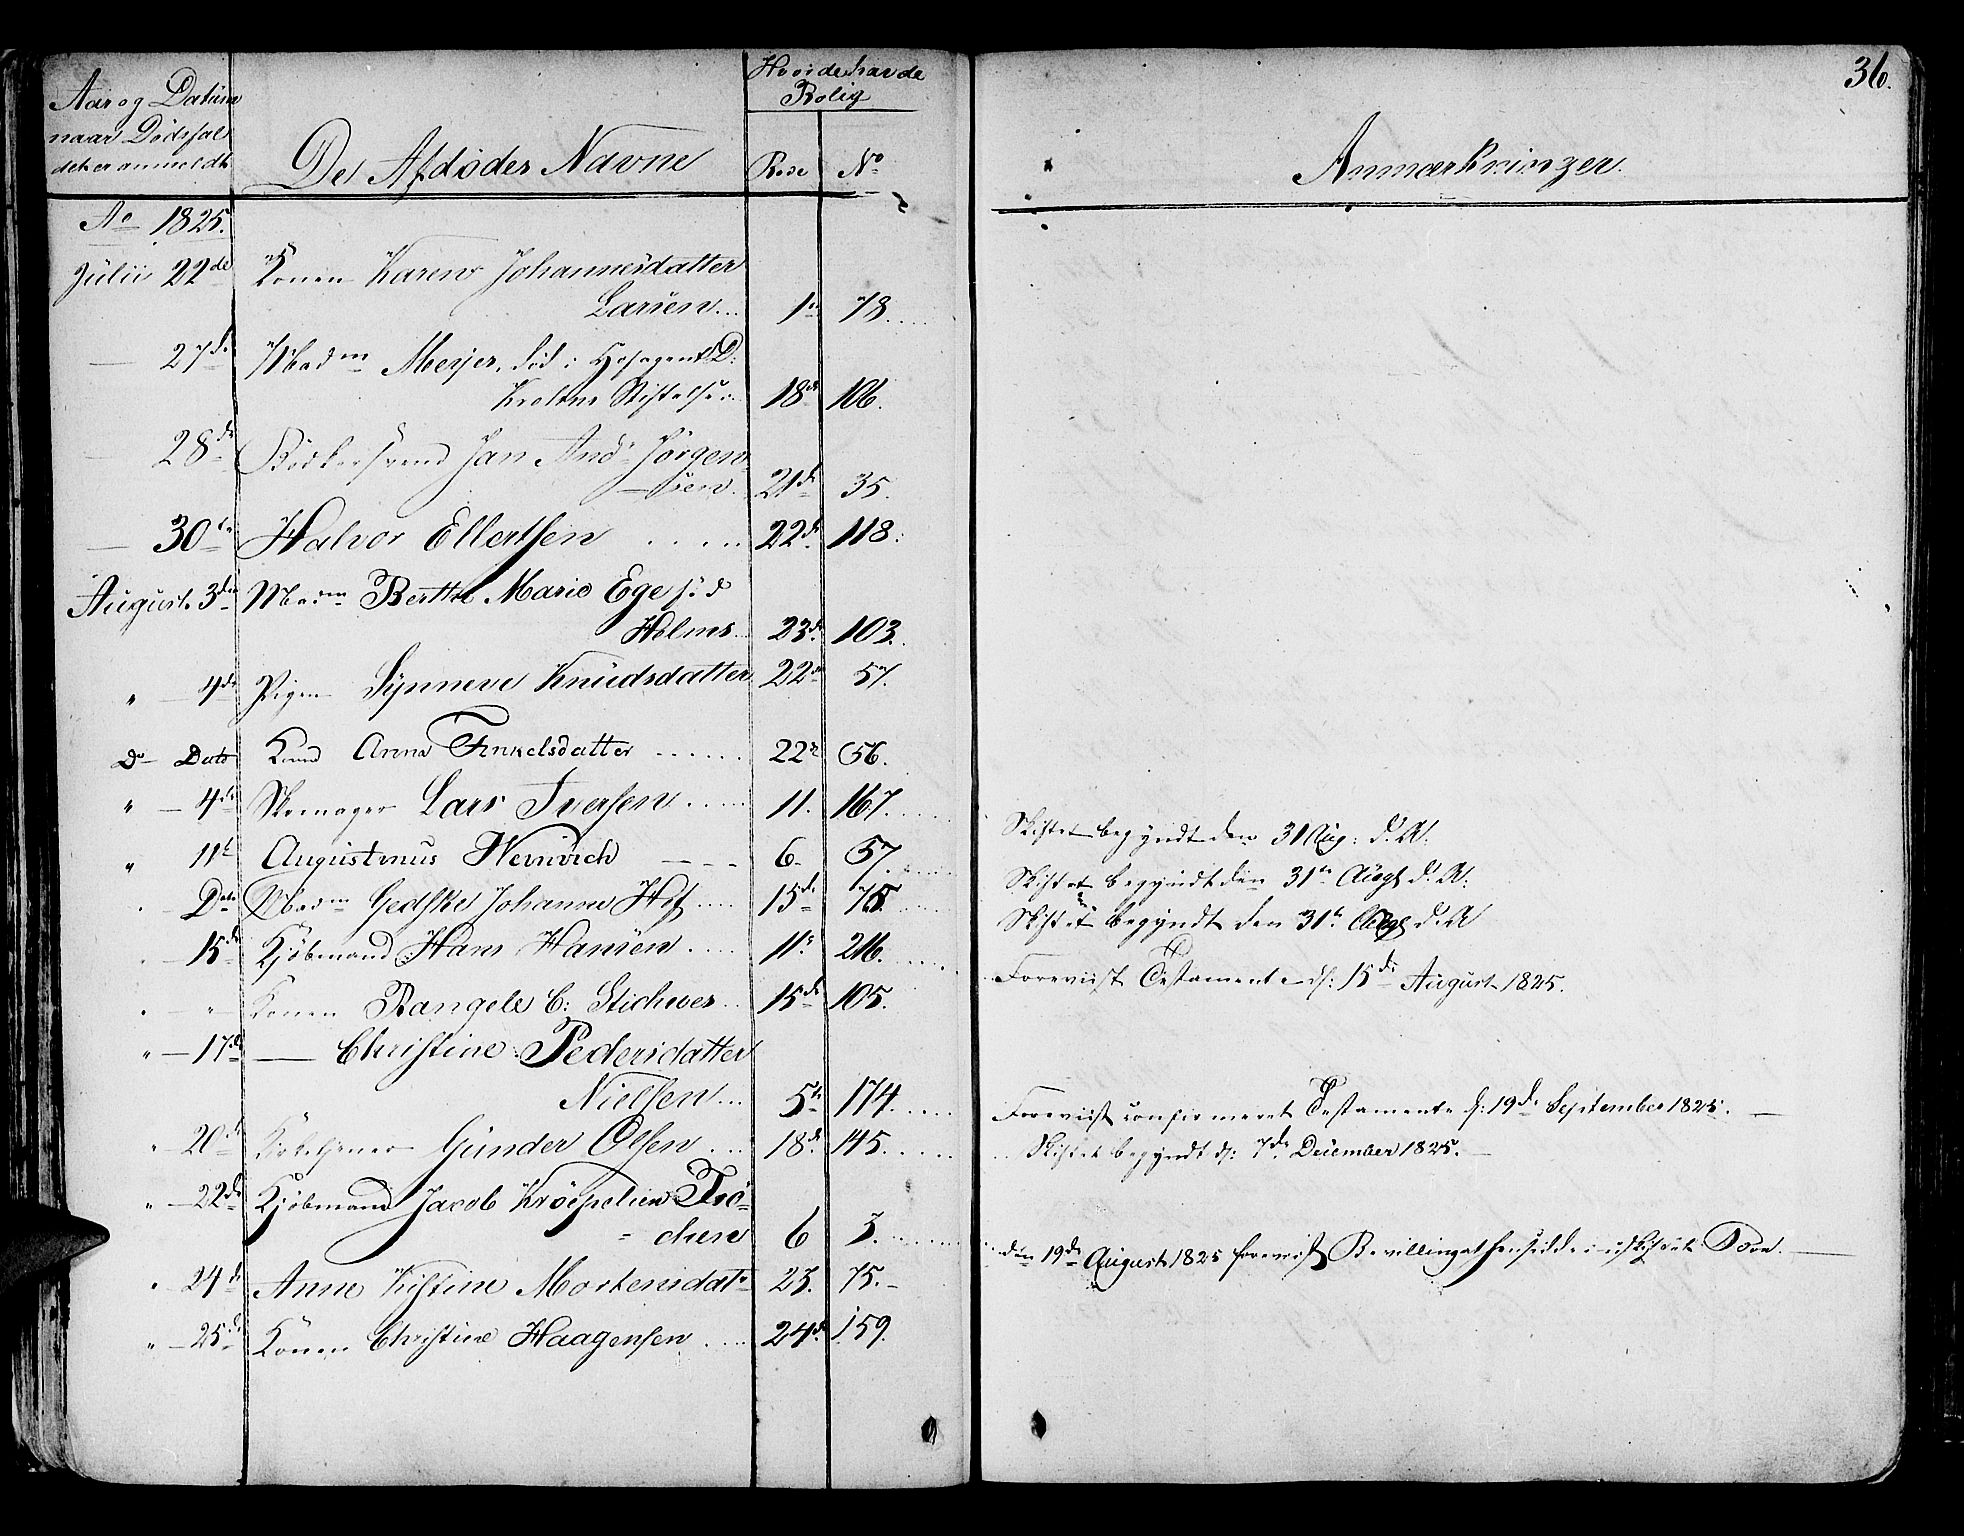 36.
Aar og Datum
naar Dødsfal
det er anmeldt
De Afdødes Navne
Hvor de havde
Bolig
Rode No
Anmærkninger.
Ao 1825.
Julii 22de Konen Karen Johannesdatter
Larsen... 1te 78....
— 27de Madm Meyer, død i Hofagent D:
Krohns Stiftelse.. 18de 106.
— 28de Bødkersvend Jan Andr Jørgen-
—sen. 21de 35.
— 30te Halvor Ellertsen ..... 22de 118.
August 3die Madm Berthe Marie Ege fød
Holms... 23de 103.
" — 4de Pigen Synneve Knudsdatter 22de 57.
Do Dato Anna Finkelsdatter ..... 22de 56.
" — 4de Skomager Lars Iversen ..... 11. 167.....
Skiftet begyndt den 31 Aug: d. A.
" 11te Augustinus Weinrich — — — 6. 57.....
Skiftet begyndt den 31te Augt d. A:
— Dato Madm Gedske Johanne Hof .... 15de 75....
Skiftet begyndt den 31te Augt d. A
— 15de Kjøbmand Hans Hansen .... 11te 216.....
Foreviist Testament d: 15de August 1825.
— " — Konen Rangele C: Stichwer.. 15de 105.
" — 17de — Christine Pedersdatter
Nielsen... 5te 174.....
Foreviist confirmeret Testamente d: 19de September 1825. —
" 20de Gunder Olsen.... 18de 145.....
Skiftet begyndt d: 7de December 1825. —
" — 22de Kjøbmand Jacob Krøepelien
6 3.....
den 19de August 1825 foreviist Bevilling at hensidde i uskiftet Boe. —
" 24de Anne Kistine Mortensdatr 23. 75.—
" — 25de Konen Christine Haagensen .... 24de 159.